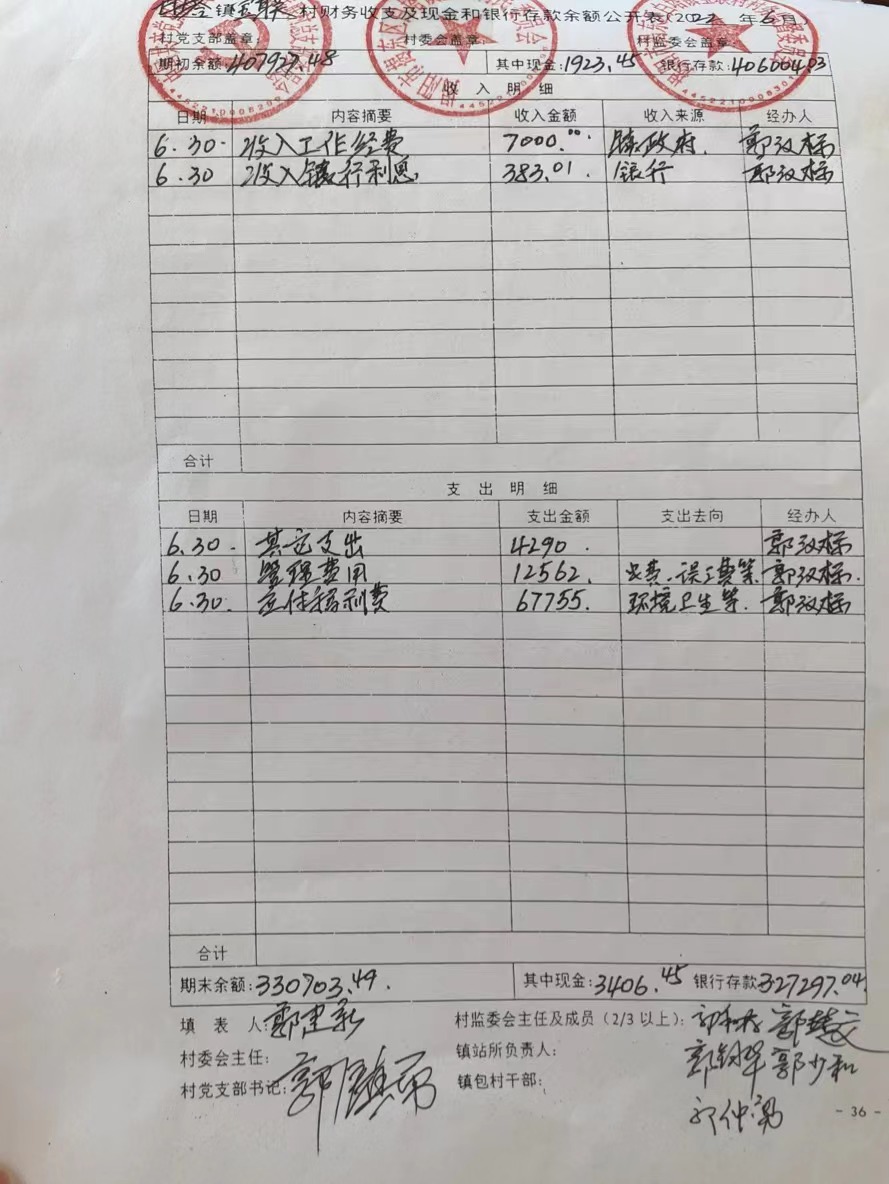 镇 村财务收支及现金和银行存款余额公开表(2022 年6月)
村党支部盖章: 村委会盖章: 村监委会盖章:
期初余额:407927.48 其中现金:1923.45 银行存款:406004.03
收 入 明 细
日期 内容摘要 收入金额 收入来源 经办人
6.30. 收入工作经费 7000.00 镇政府. 郭汉标
6.30 收入银行利息 383.01 银行 郭汉标
合计
支 出 明 细
日期 内容摘要 支出金额 支出去向 经办人
6.30. 其它支出 4290. 郭汉标
6.30 管理费用 12562. 费.误工费等. 郭汉标.
6.30. 应付福利费 67755. 环境卫生等. 郭汉标
合计
期末余额:330703.49. 其中现金:3406.45 银行存款327297.04.
填 表 人: 郭建新 村监委会主任及成员(2/3以上):
村委会主任: 镇站所负责人: 郭少和
村党支部书记: 郭 镇包村干部:
- 36 -